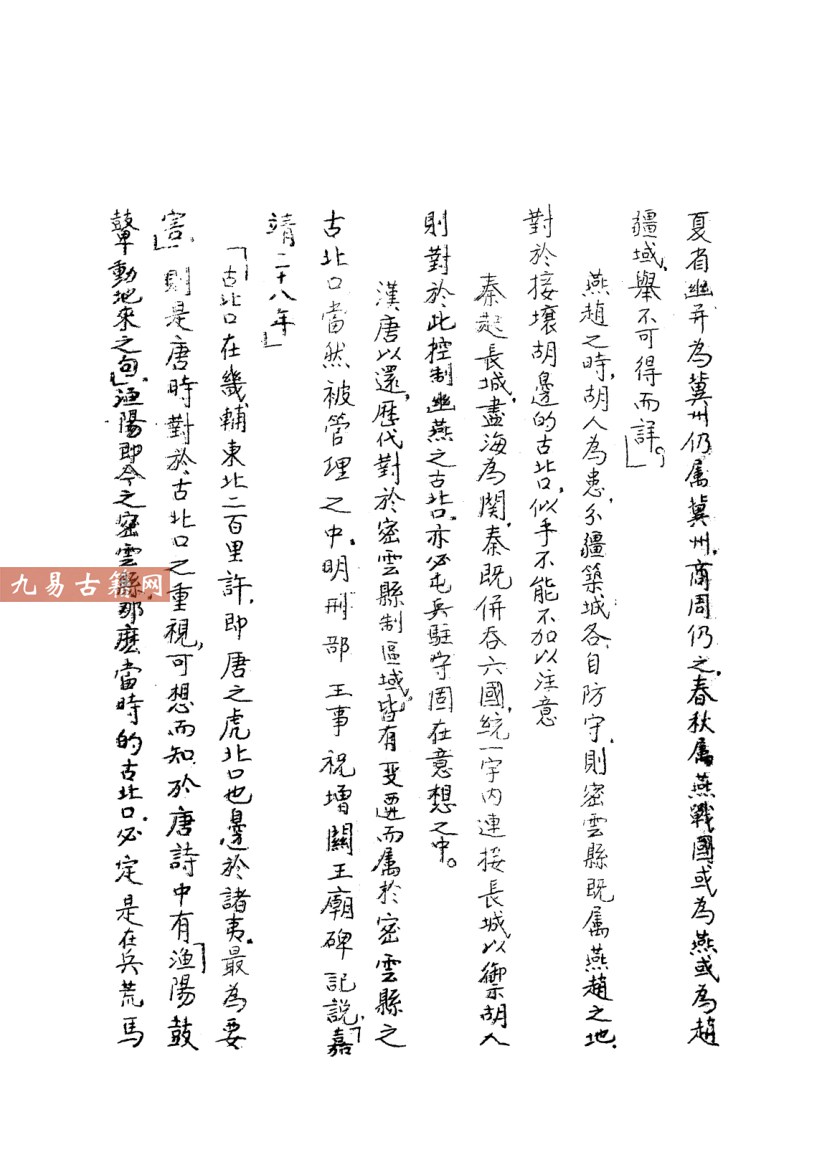 夏省幽并為冀州仍属冀州,商周仍之,春秋属燕戰國或為燕或為趙
疆域,舉不可得而詳。」
燕趙之時,胡人為患,分疆築城各自防守,則密雲縣既属燕趙之地,
對於接壤胡邊的古北口,似乎不能不加以注意
秦起長城,盡海為関,秦既併吞六國,統一宇内連接長城以禦胡人
則對於此控制幽燕之古北口,亦必屯兵駐守固在意想之中。
漢唐以還,歷代對於密雲縣制區域,皆有变遷而属於密雲縣之
古北口當然被管理之中,明刑部王事祝增關王廟碑記說,「嘉
靖二十八年」
「古北口在幾輔東北二百里許,即唐之虎北口也邊於諸夷,最為要
害,」則是唐時對於古北口之重視,可想而知於唐詩中有「漁陽鼓
鼙動地來之句」,漁陽即今之密雲縣,那麼當時的古北口,必定是在兵荒馬
九易古籍网